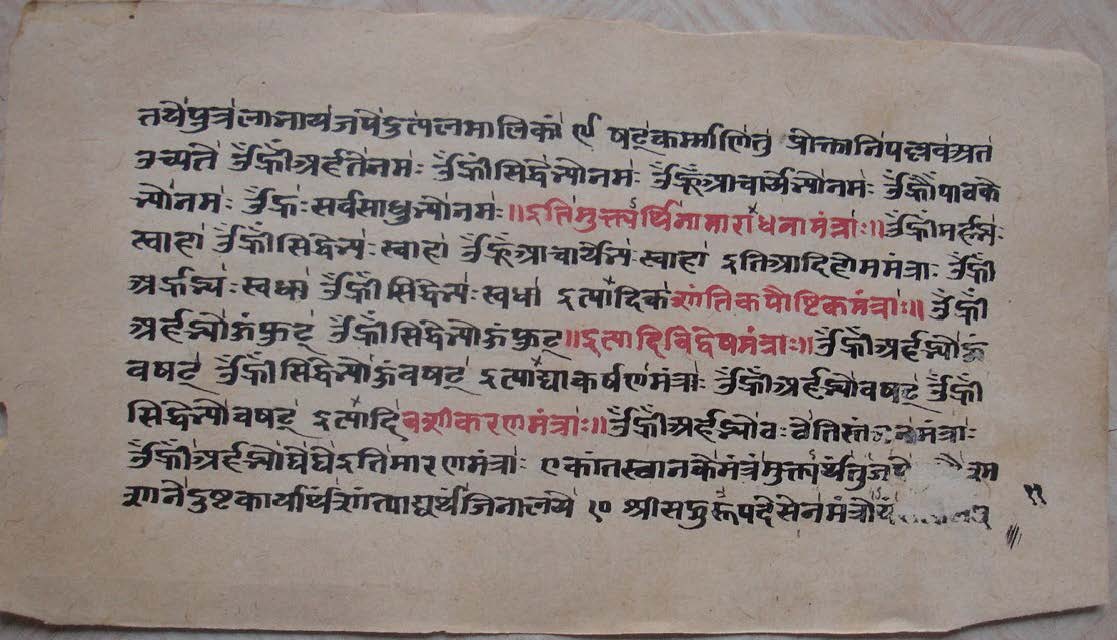 तथैपुत्रलाभायजपेदुत्पलमालिकां ९ षट्कर्म्माणितु प्रोक्तानिपल्लवंअत
उच्यते ॐह्रींअर्हतेनमः ॐह्रींसिद्धेभ्योनमः ॐह्रूंआचार्येभ्योनमः ॐह्रौंपाठके
भ्योनमः ॐह्रःसर्वसाधुभ्योनमः॥इतिमुक्त्यर्थिनामाराधनामंत्राः॥ॐह्रींमर्हद्भ्यः
स्वाहा ॐह्रींसिद्धेभ्यःस्वाहा ॐह्रूंआचार्येभ्यःस्वाहा इतिआदिहोममंत्राः ॐह्रीं
अर्हद्भ्यःस्वधा ॐह्रींसिद्धेभ्यःस्वधा इत्यादिकंशांतिकपौष्टिकमंत्राः॥ ॐह्रीं
अर्हद्भ्योहूंफुट् ॐह्रींसिद्धेभ्योहूंफुट्॥इत्यादिविद्वेषमंत्राः॥ॐह्रींअर्हद्भ्योहूं
वषट् ॐह्रींसिद्धेभ्योहूंवषट् इत्याद्याकर्षणमंत्राः ॐह्रींअर्हद्भ्योवषट् ॐह्रीं
सिद्धेभ्योवषट् इत्यादिवशीकरणमंत्राः॥ॐह्रींअर्हद्भ्योवःवेतिस्तंभनमंत्राः
ॐह्रींअर्हद्भ्योघेघेइतिमारणमंत्राः एकांतस्थानकेमंत्रंमुक्त्यर्थंतुजपे
शानेदुष्टकार्यार्थंशांत्याद्यर्थंजिनालये १० श्रीसद्गुरूपदेसेनमंत्रोयं
११